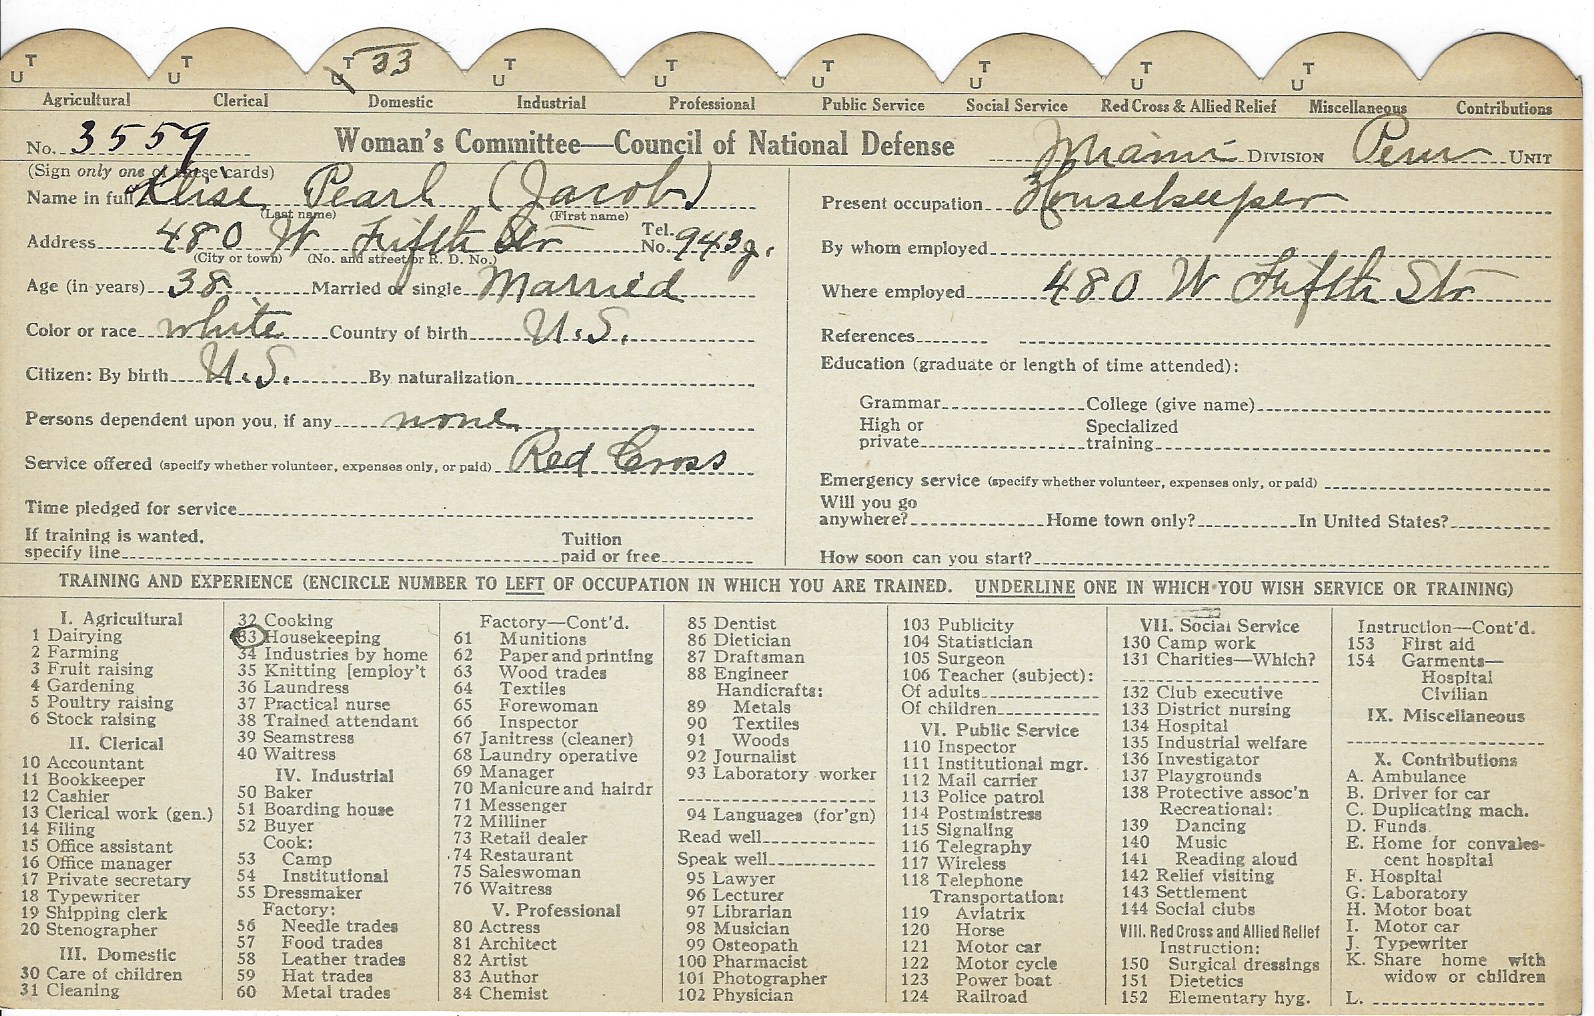 T U T U T U 33 T U T U T U T U T U T U
Agricultural Clerical Domestic Industrial Professional Public Service Social Service Red Cross & Allied Relief Miscellaneous Contributions
No. 3559 Woman's Committee—Council of National Defense Miami DIVISION Peru UNIT
(Sign only one of these cards)
Name in full Klise Pearl (Jacob)
(Last name) (First name)
Address 480 W Fifth Str Tel. No. 943 J.
(City or town) (No. and street or R. D. No.)
Age (in years) 38 Married or single Married
Color or race white Country of birth U.S.
Citizen: By birth U.S. By naturalization
Persons dependent upon you, if any none
Service offered (specify whether volunteer, expenses only, or paid) Red Cross
Time pledged for service
If training is wanted,
specify line
Tuition
paid or free
Present occupation Housekeeper
By whom employed
Where employed 480 W Fifth Str
References
Education (graduate or length of time attended):
Grammar College (give name)
High or
private
Specialized
training
Emergency service (specify whether volunteer, expenses only, or paid)
Will you go
anywhere? Home town only? In United States?
How soon can you start?
TRAINING AND EXPERIENCE (ENCIRCLE NUMBER TO LEFT OF OCCUPATION IN WHICH YOU ARE TRAINED. UNDERLINE ONE IN WHICH YOU WISH SERVICE OR TRAINING)
I. Agricultural
1 Dairying
2 Farming
3 Fruit raising
4 Gardening
5 Poultry raising
6 Stock raising
II. Clerical
10 Accountant
11 Bookkeeper
12 Cashier
13 Clerical work (gen.)
14 Filing
15 Office assistant
16 Office manager
17 Private secretary
18 Typewriter
19 Shipping clerk
20 Stenographer
III. Domestic
30 Care of children
31 Cleaning
32 Cooking
33 Housekeeping
34 Industries by home
35 Knitting [employ't
36 Laundress
37 Practical nurse
38 Trained attendant
39 Seamstress
40 Waitress
IV. Industrial
50 Baker
51 Boarding house
52 Buyer
Cook:
53 Camp
54 Institutional
55 Dressmaker
Factory:
56 Needle trades
57 Food trades
58 Leather trades
59 Hat trades
60 Metal trades
Factory—Cont'd.
61 Munitions
62 Paper and printing
63 Wood trades
64 Textiles
65 Forewoman
66 Inspector
67 Janitress (cleaner)
68 Laundry operative
69 Manager
70 Manicure and hairdr
71 Messenger
72 Milliner
73 Retail dealer
74 Restaurant
75 Saleswoman
76 Waitress
V. Professional
80 Actress
81 Architect
82 Artist
83 Author
84 Chemist
85 Dentist
86 Dietician
87 Draftsman
88 Engineer
Handicrafts:
89 Metals
90 Textiles
91 Woods
92 Journalist
93 Laboratory worker
94 Languages (for'gn)
Read well
Speak well
95 Lawyer
96 Lecturer
97 Librarian
98 Musician
99 Osteopath
100 Pharmacist
101 Photographer
102 Physician
103 Publicity
104 Statistician
105 Surgeon
106 Teacher (subject):
Of adults
Of children
VI. Public Service
110 Inspector
111 Institutional mgr.
112 Mail carrier
113 Police patrol
114 Postmistress
115 Signaling
116 Telegraphy
117 Wireless
118 Telephone
Transportation:
119 Aviatrix
120 Horse
121 Motor car
122 Motor cycle
123 Power boat
124 Railroad
VII. Social Service
130 Camp work
131 Charities—Which?
132 Club executive
133 District nursing
134 Hospital
135 Industrial welfare
136 Investigator
137 Playgrounds
138 Protective assoc'n
Recreational:
139 Dancing
140 Music
141 Reading aloud
142 Relief visiting
143 Settlement
144 Social clubs
VIII. Red Cross and Allied Relief
Instruction:
150 Surgical dressings
151 Dietetics
152 Elementary hyg.
Instruction—Cont'd.
153 First aid
154 Garments—
Hospital
Civilian
IX. Miscellaneous
X. Contributions
A. Ambulance
B. Driver for car
C. Duplicating mach.
D. Funds
E. Home for convales-
cent hospital
F. Hospital
G. Laboratory
H. Motor boat
I. Motor car
J. Typewriter
K. Share home with
widow or children
L.